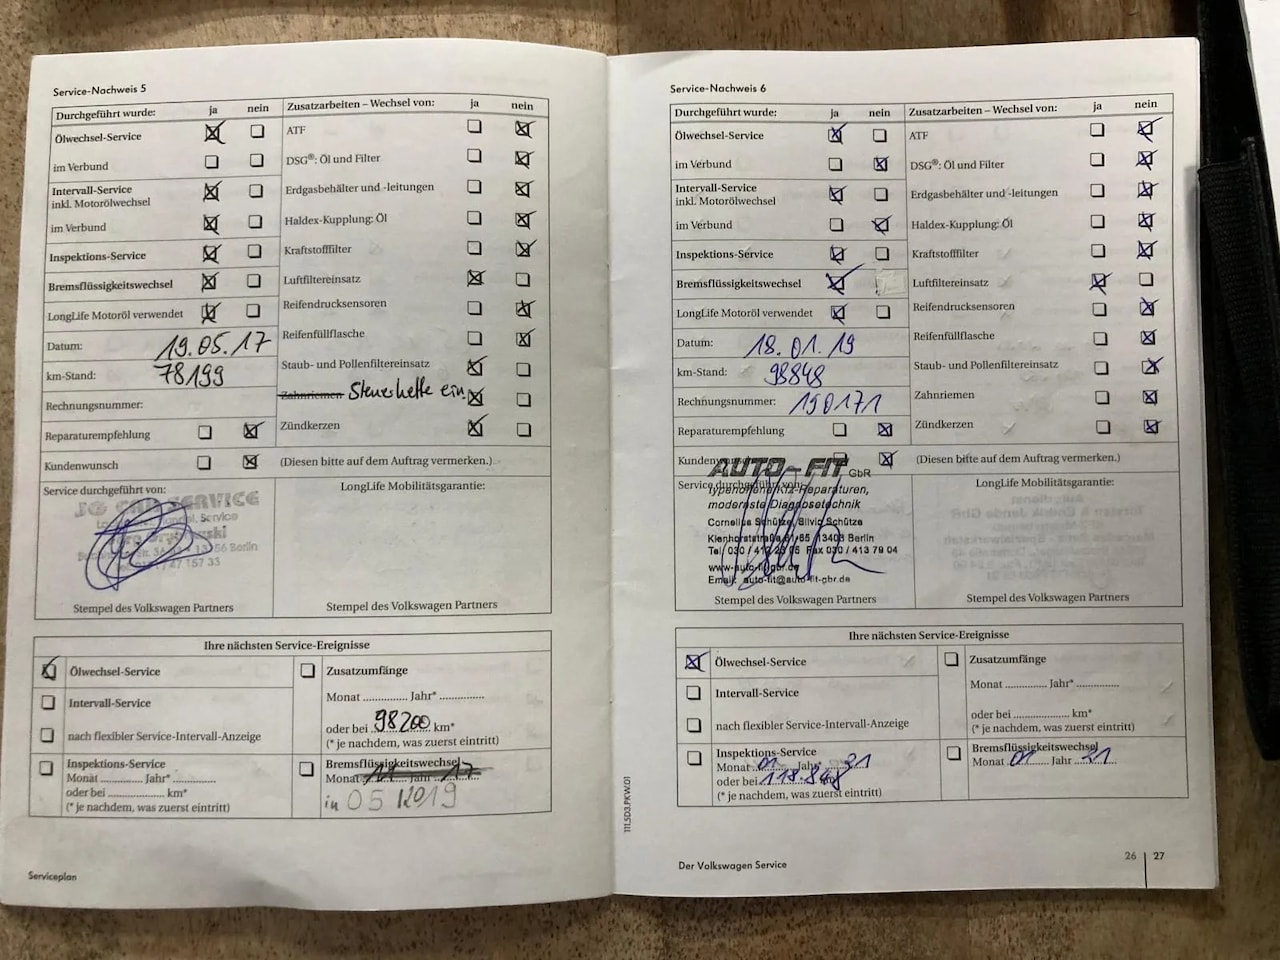 Service-Nachweis 5
Durchgeführt wurde: ja nein
Ölwechsel-Service
im Verbund
Intervall-Service
inkl. Motorölwechsel
im Verbund
Inspektions-Service
Bremsflüssigkeitswechsel
LongLife Motoröl verwendet
Datum: 19.05.17
km-Stand: 78199
Rechnungsnummer:
Reparaturempfehlung
Kundenwunsch
Zusatzarbeiten – Wechsel von: ja nein
ATF
DSG®: Öl und Filter
Erdgasbehälter und -leitungen
Haldex-Kupplung: Öl
Kraftstofffilter
Luftfiltereinsatz
Reifendrucksensoren
Reifenfüllflasche
Staub- und Pollenfiltereinsatz
Zahnriemen Steuerkette ein
Zündkerzen
(Diesen bitte auf dem Auftrag vermerken.)
Service durchgeführt von:
CAR SERVICE
Service
Berlin
Stempel des Volkswagen Partners
LongLife Mobilitätsgarantie:
Stempel des Volkswagen Partners
Ihre nächsten Service-Ereignisse
Ölwechsel-Service
Intervall-Service
nach flexibler Service-Intervall-Anzeige
Inspektions-Service
Monat ............ Jahr* ............
oder bei .................. km*
(* je nachdem, was zuerst eintritt)
Zusatzumfänge
Monat ............ Jahr* ............
oder bei 98200 km*
(* je nachdem, was zuerst eintritt)
Bremsflüssigkeitswechsel
Monat 11 Jahr 17
in 05 12019
Serviceplan
Service-Nachweis 6
Durchgeführt wurde: ja nein
Ölwechsel-Service
im Verbund
Intervall-Service
inkl. Motorölwechsel
im Verbund
Inspektions-Service
Bremsflüssigkeitswechsel
LongLife Motoröl verwendet
Datum: 18.01.19
km-Stand: 98848
Rechnungsnummer: 190171
Reparaturempfehlung
Kundenwunsch
Zusatzarbeiten – Wechsel von: ja nein
ATF
DSG®: Öl und Filter
Erdgasbehälter und -leitungen
Haldex-Kupplung: Öl
Kraftstofffilter
Luftfiltereinsatz
Reifendrucksensoren
Reifenfüllflasche
Staub- und Pollenfiltereinsatz
Zahnriemen
Zündkerzen
(Diesen bitte auf dem Auftrag vermerken.)
Service durchgeführt von:
AUTO-FIT GbR
typenoffene Kfz-Reparaturen,
modernste Diagnosetechnik
Cornelius Schütze, Silvio Schütze
Berlin
Tel 030 / Fax 030 / 413 79 04
www.auto-fit-gbr.de
Email: auto-fit@auto-fit-gbr.de
Stempel des Volkswagen Partners
LongLife Mobilitätsgarantie:
Stempel des Volkswagen Partners
Ihre nächsten Service-Ereignisse
Ölwechsel-Service
Intervall-Service
nach flexibler Service-Intervall-Anzeige
Inspektions-Service
Monat 01 Jahr* 21
oder bei 118.848 km*
(* je nachdem, was zuerst eintritt)
Zusatzumfänge
Monat ............ Jahr* ............
oder bei .................. km*
(* je nachdem, was zuerst eintritt)
Bremsflüssigkeitswechsel
Monat 01 Jahr 21
111.5D3.PKW.01
Der Volkswagen Service
26 | 27